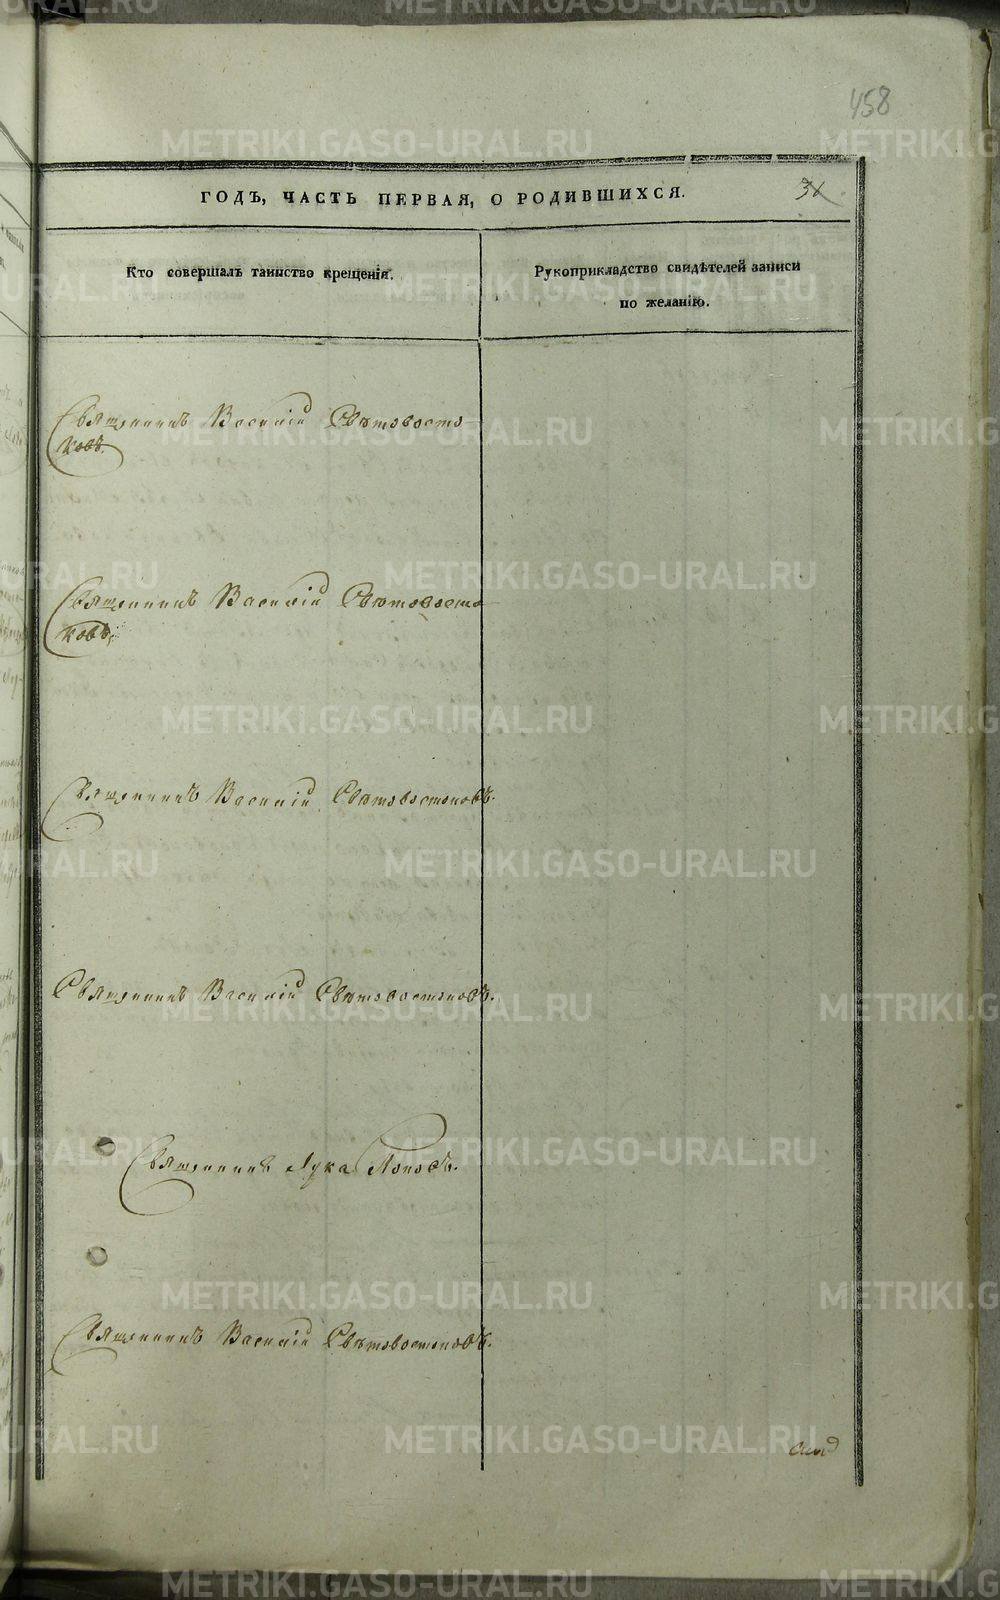 458
ГОДЪ, ЧАСТЬ ПЕРВАЯ, О РОДИВШИХСЯ.
Кто совершалъ таинство крещенія.
Рукоприкладство свидѣтелей записи
по желанію.
Священникъ Василій Свѣтовосто-
ковъ.
Священникъ Василій Свѣтовосто-
ковъ.
Священникъ Василій Свѣтовостоковъ.
Священникъ Василій Свѣтовостоковъ.
Священникъ Лука Поповъ.
Священникъ Василій Свѣтовостоковъ.
METRIKI.GASO-URAL.RU